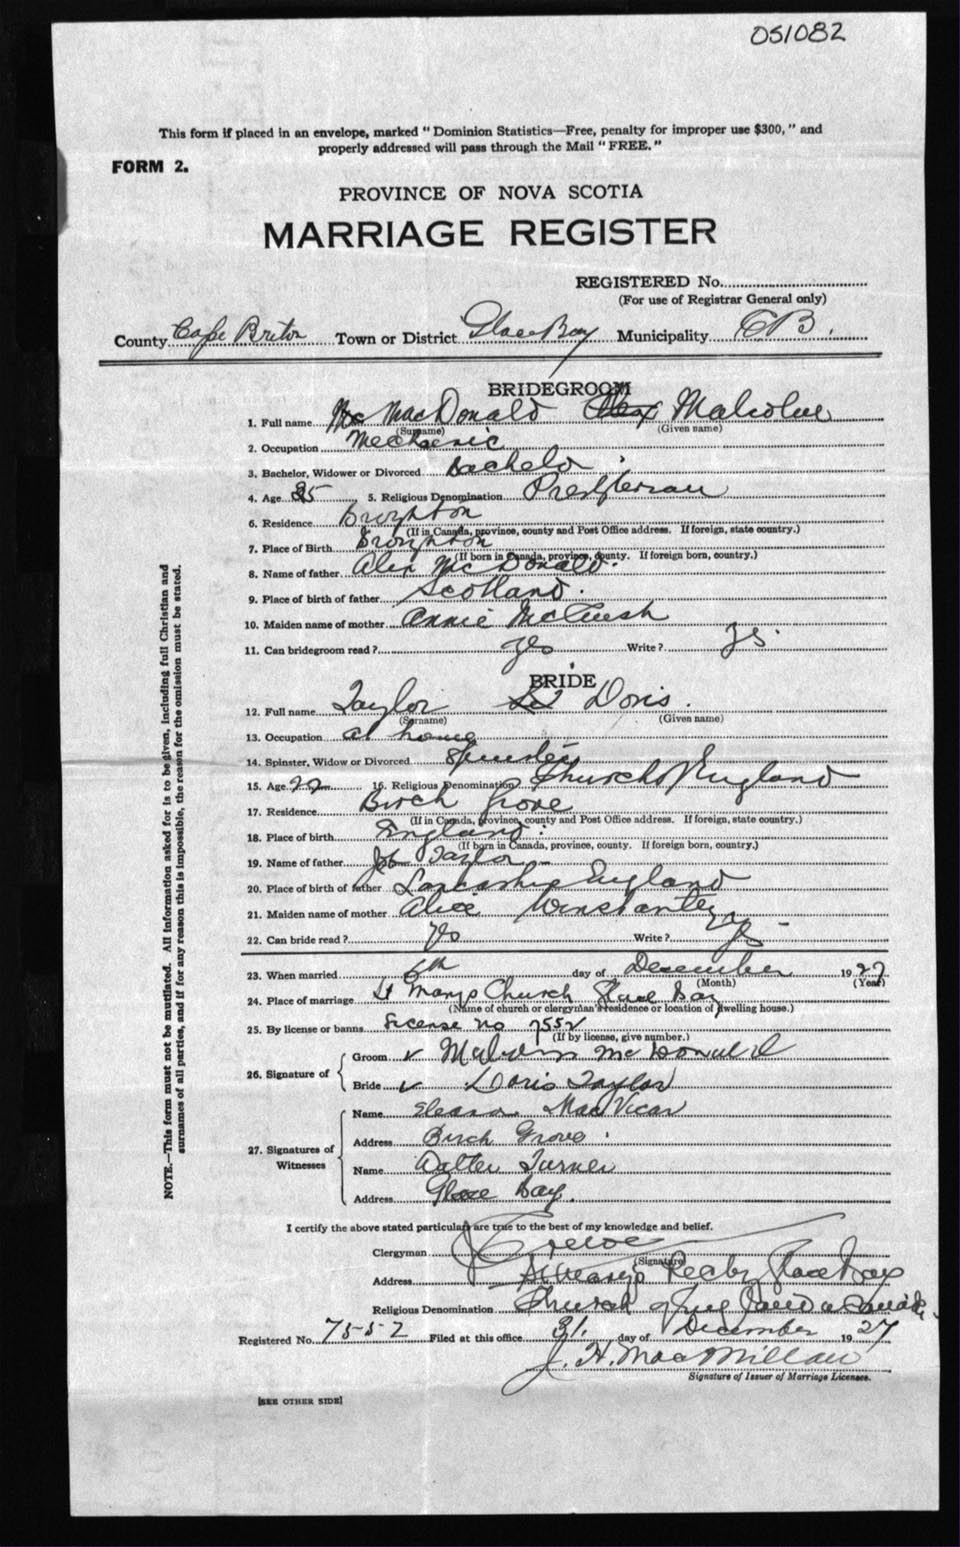 051082
This form if placed in an envelope, marked "Dominion Statistics—Free, penalty for improper use $300," and
properly addressed will pass through the Mail "FREE."
FORM 2.
PROVINCE OF NOVA SCOTIA
MARRIAGE REGISTER
REGISTERED No.
(For use of Registrar General only)
County Cape Breton Town or District Glace Bay Municipality C B.
BRIDEGROOM
1. Full name MacDonald Malcolm
(Surname) (Given name)
2. Occupation Mechanic
3. Bachelor, Widower or Divorced Bachelor
4. Age 25 5. Religious Denomination Presbyterian
6. Residence Broughton
(If in Canada, province, county and Post Office address. If foreign, state country.)
7. Place of Birth Broughton
(If born in Canada, province, county. If foreign born, country.)
8. Name of father Alex McDonald.
9. Place of birth of father Scotland.
10. Maiden name of mother Annie
11. Can bridegroom read? yes Write? yes.
BRIDE
12. Full name Taylor Doris.
(Surname) (Given name)
13. Occupation at home
14. Spinster, Widow or Divorced Spinster
15. Age 22 16. Religious Denomination Church of England
17. Residence Birch Grove
(If in Canada, province, county and Post Office address. If foreign, state country.)
18. Place of birth England
(If born in Canada, province, county. If foreign born, country.)
19. Name of father Taylor
20. Place of birth of father Lancashire England
21. Maiden name of mother Alice Winstanley
22. Can bride read? Yes Write? Yes
23. When married 6th day of December 1927
(Month) (Year)
24. Place of marriage St Marys Church Glace Bay
(Name of church or clergyman's residence or location of dwelling house.)
25. By license or banns License no 7552
(If by license, give number.)
26. Signature of
Groom Malcolm McDonald
Bride Doris Taylor
27. Signatures of
Witnesses
Name Eleanor MacVicar
Address Birch Grove.
Name Walter Turner
Address Glace Bay.
I certify the above stated particulars are true to the best of my knowledge and belief.
Clergyman
(Signature)
Address St Mary's Glace Bay
Religious Denomination Church of Eng
Registered No. 7552 Filed at this office 31. day of December 1927
J. H. MacMillan
Signature of Issuer of Marriage Licenses.
[SEE OTHER SIDE]
NOTE.—This form must not be mutilated. All information asked for is to be given, including full Christian and
surnames of all parties, and if for any reason this is impossible, the reason for the omission must be stated.